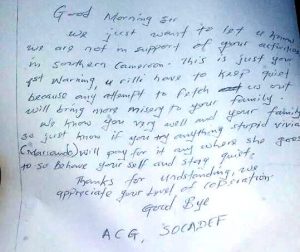 Good Morning Sir
We just want to let u know
we are not in support of your activities
in Southern Cameroon. This is just your
1st warning, u will have to keep quiet
because any attempt to fetch us out
will bring more misery to your family.
We know you very well and your family
so just know if you try anything stupid vivian
(Massando) will pay for it any where she goes
to so behave your self and stay quiet,
Thanks for Undstanding, we
appreciate your level of
Good Bye
ACG, SOCADEF